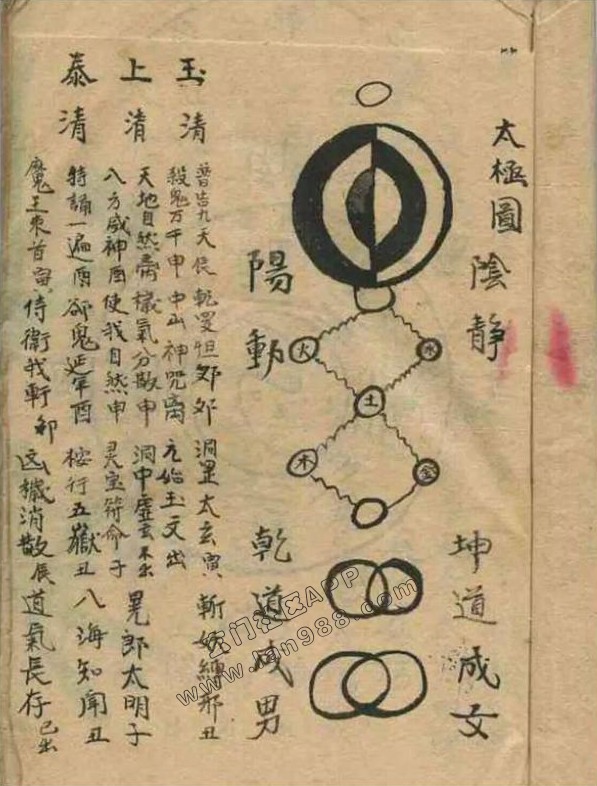 太極圖 陰靜
陽動
火 水
土
木 金
坤道成女
乾道成男
玉清
上清
泰清
九天 乾 怛 洞罡太玄寅 斬妖縛邪丑
殺鬼万千申 中山神咒 元始玉文出
天地自然 穢氣分散申 洞中虛玄 出 晃郎太明子
八方威神酉 使我自然申 灵宝符命子
特誦一遍酉 卻鬼延年酉 桉行五嶽丑 八海知聞丑
魔王束首寅 侍衛我軒卯 凶穢消散辰 道氣長存已出